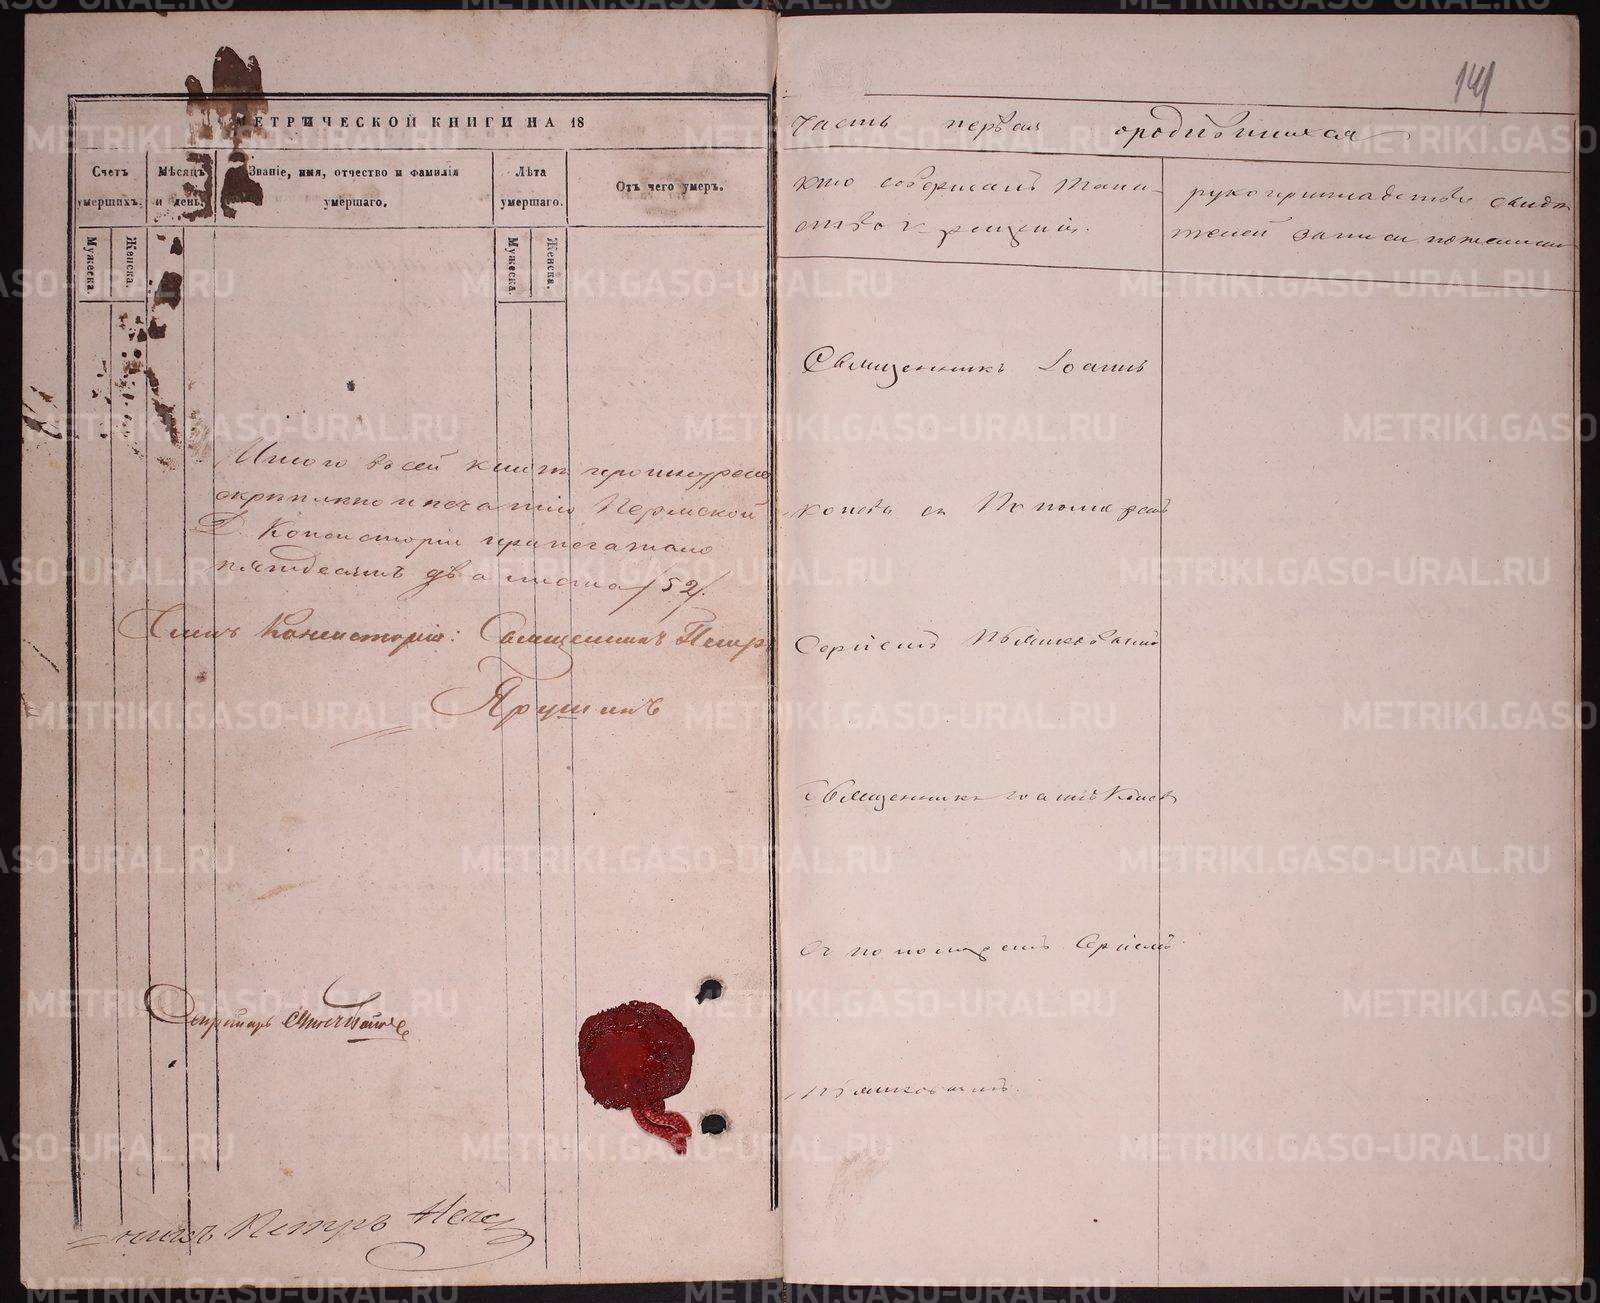 МЕТРИЧЕСКОЙ КНИГИ НА 18
Счетъ умершихъ.
Мѣсяцъ и день.
Званіе, имя, отчество и фамилія умершаго.
Лѣта умершаго.
Отъ чего умеръ.
Мужеска.
Женска.
Мужеска.
Женска.
Итого въ сей книгѣ прошнуровано
скрѣплено и печатію Пермской
Д. Консисторіи припечатано
пятдесятъ два листа /52/.
Членъ Консисторіи: Священникъ Петръ
Ярушинъ
Секретарь
Петръ
141
часть первая о родившихся
кто совершалъ таин-
ство крещенія.
рукоприкладство свидѣ
телей записи по желанію
Священникъ Іоаннъ
Коневъ съ Пономаремъ
Сергіемъ
Священникъ Іоаннъ Коневъ
съ пономаремъ Сергіемъ
METRIKI.GASO-URAL.RU